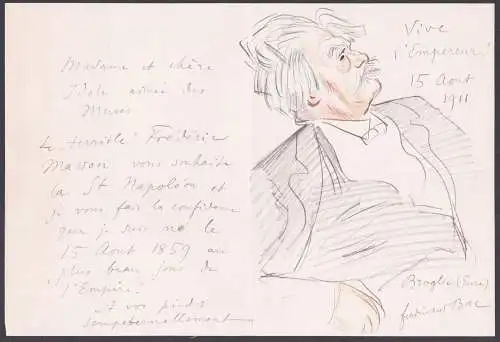 Madame et chère
Idole aimée des
Muses
Le "terrible" Frédéric
Masson vous souhaite
la St Napoléon et
je vous fais la confidence
que je suis né le
15 Aout 1859 au
plus beau jour de
"l'Empire".
A vos pieds
sempeternellement
Vive
l'Empereur!
15 Aout
1911
Broglie (Eure)
Ferdinand Bac